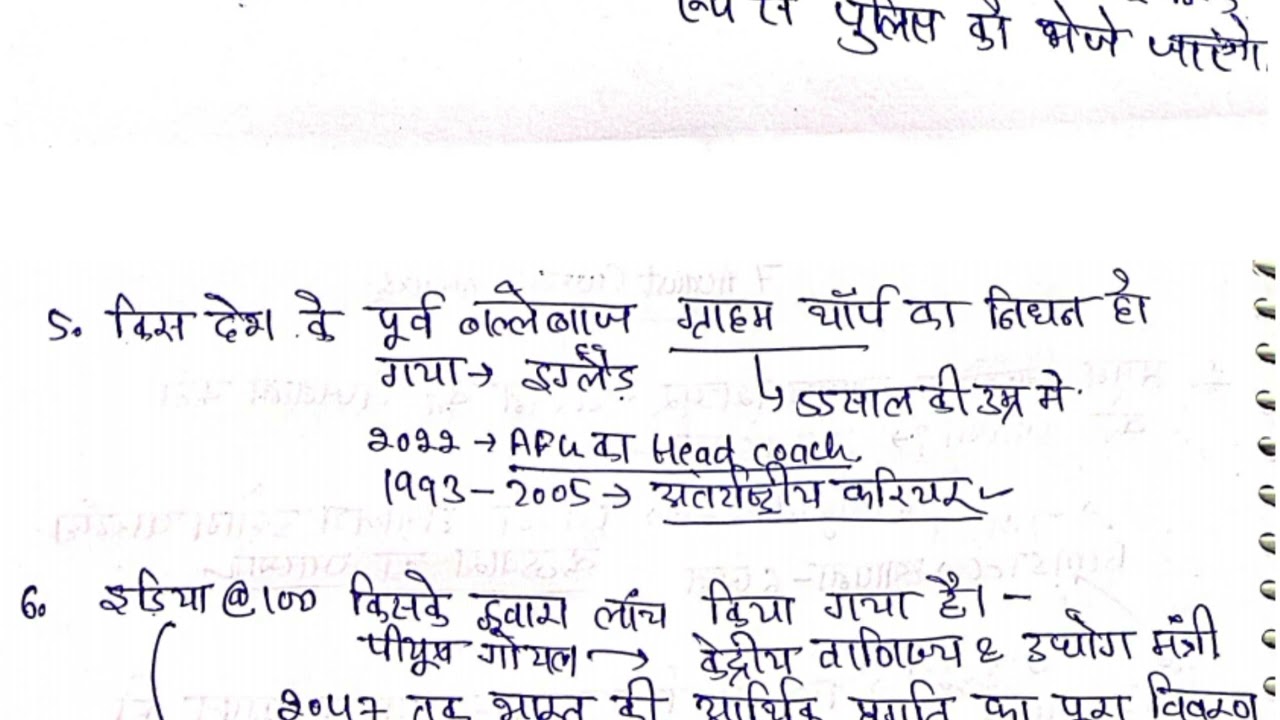 रूप से पुलिस को भेजे जाएंगे.
5. किस देश के पूर्व बल्लेबाज ग्राहम थॉर्प का निधन हो
गया → इग्लैंड
↳ 55साल की उम्र मे
2022 → AFG का Head coach
1993 - 2005 → अंतर्राष्ट्रीय करियर
6. इंडिया @100 किसके द्वारा लॉंच किया गया है। -
पीयूष गोयल → केद्रीय वाणिज्य & उद्योग मंत्री
2047 तक भारत की आर्थिक प्रगति का पुरा विवरण